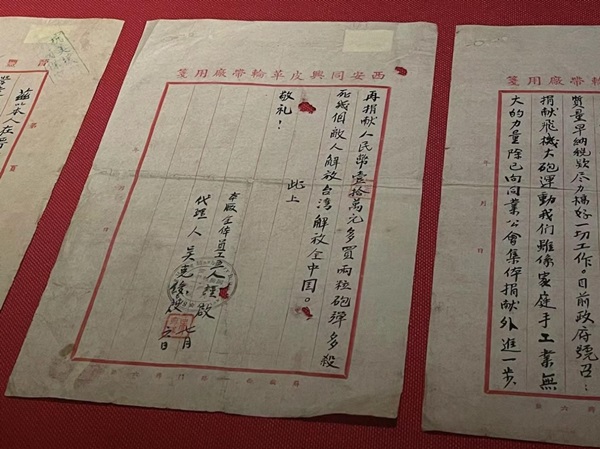 輪帶廠用箋
質量早納稅款尽力搞好一切工作。目前政府號召：
捐献飛機大砲運動我們雖係家庭手工業無
大的力量除已向同業公會集体捐献外進一步
西安同興皮革輪帶廠用箋
再捐献人民幣壹拾萬元多買兩粒砲彈多殺
死幾個敵人解放台湾解放全中国。
此上
敬礼！
本廠全体員工人謹啟
代理人吴克俊
七月
日
本人在